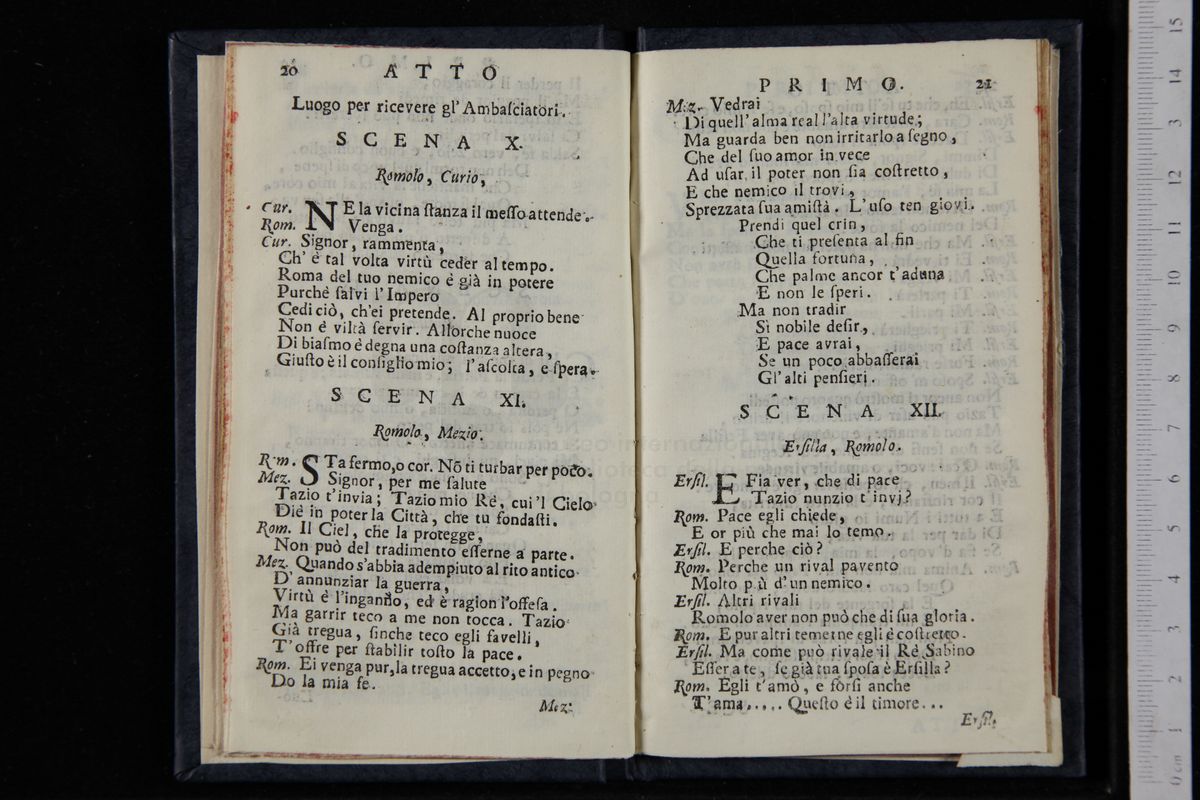 20 ATTO
Luogo per ricevere gl' Ambaſciatori.
SCENA X.
Romolo, Curio,
Cur. NE la vicina ſtanza il meſſo attende.
Rom. Venga.
Cur. Signor, rammenta,
Ch' è tal volta virtù ceder al tempo.
Roma del tuo nemico è già in potere
Purchè ſalvi l'Impero
Cedi ciò, ch'ei pretende. Al proprio bene
Non è viltà ſervir. Allorche nuoce
Di biaſmo è degna una coſtanza altera,
Giuſto è il conſiglio mio; l'aſcolta, e ſpera.
SCENA XI.
Romolo, Mezio.
Rom. STa fermo, o cor. Nõ ti turbar per poco.
Mez. Signor, per me ſalute
Tazio t'invia; Tazio mio Rè, cui 'l Cielo
Diè in poter la Città, che tu fondaſti.
Rom. Il Ciel, che la protegge,
Non può del tradimento eſſerne a parte.
Mez. Quando s'abbia adempiuto al rito antico
D' annunziar la guerra,
Virtù è l'inganno, ed è ragion l'offeſa.
Ma garrir teco a me non tocca. Tazio
Già tregua, finche teco egli favelli,
T'offre per ſtabilir toſto la pace.
Rom. Ei venga pur, la tregua accetto, e in pegno
Do la mia fe.
Mez.
PRIMO. 21
Mez. Vedrai
Di quell' alma real l'alta virtude;
Ma guarda ben non irritarlo a ſegno,
Che del ſuo amor in vece
Ad uſar il poter non ſia coſtretto,
E che nemico il trovi,
Sprezzata ſua amiſtà. L'uſo ten giovi.
Prendi quel crin,
Che ti preſenta al fin
Quella fortuna,
Che palme ancor t'aduna
E non le ſperi.
Ma non tradir
Sì nobile deſir,
E pace avrai,
Se un poco abbaſſerai
Gl' alti penſieri.
SCENA XII.
Erſilla, Romolo.
Erſil. E Fia ver, che di pace
Tazio nunzio t'invj?
Rom. Pace egli chiede,
E or più che mai lo temo.
Erſil. E perche ciò?
Rom. Perche un rival pavento
Molto più d'un nemico.
Erſil. Altri rivali
Romolo aver non può che di ſua gloria.
Rom. E pur altri temerne egli è coſtretto.
Erſil. Ma come può rivale il Rè Sabino
Eſſer a te, ſe già tua ſpoſa è Erſilla?
Rom. Egli t'amò, e forſi anche
T'ama..... Queſto è il timore...
Erſil.